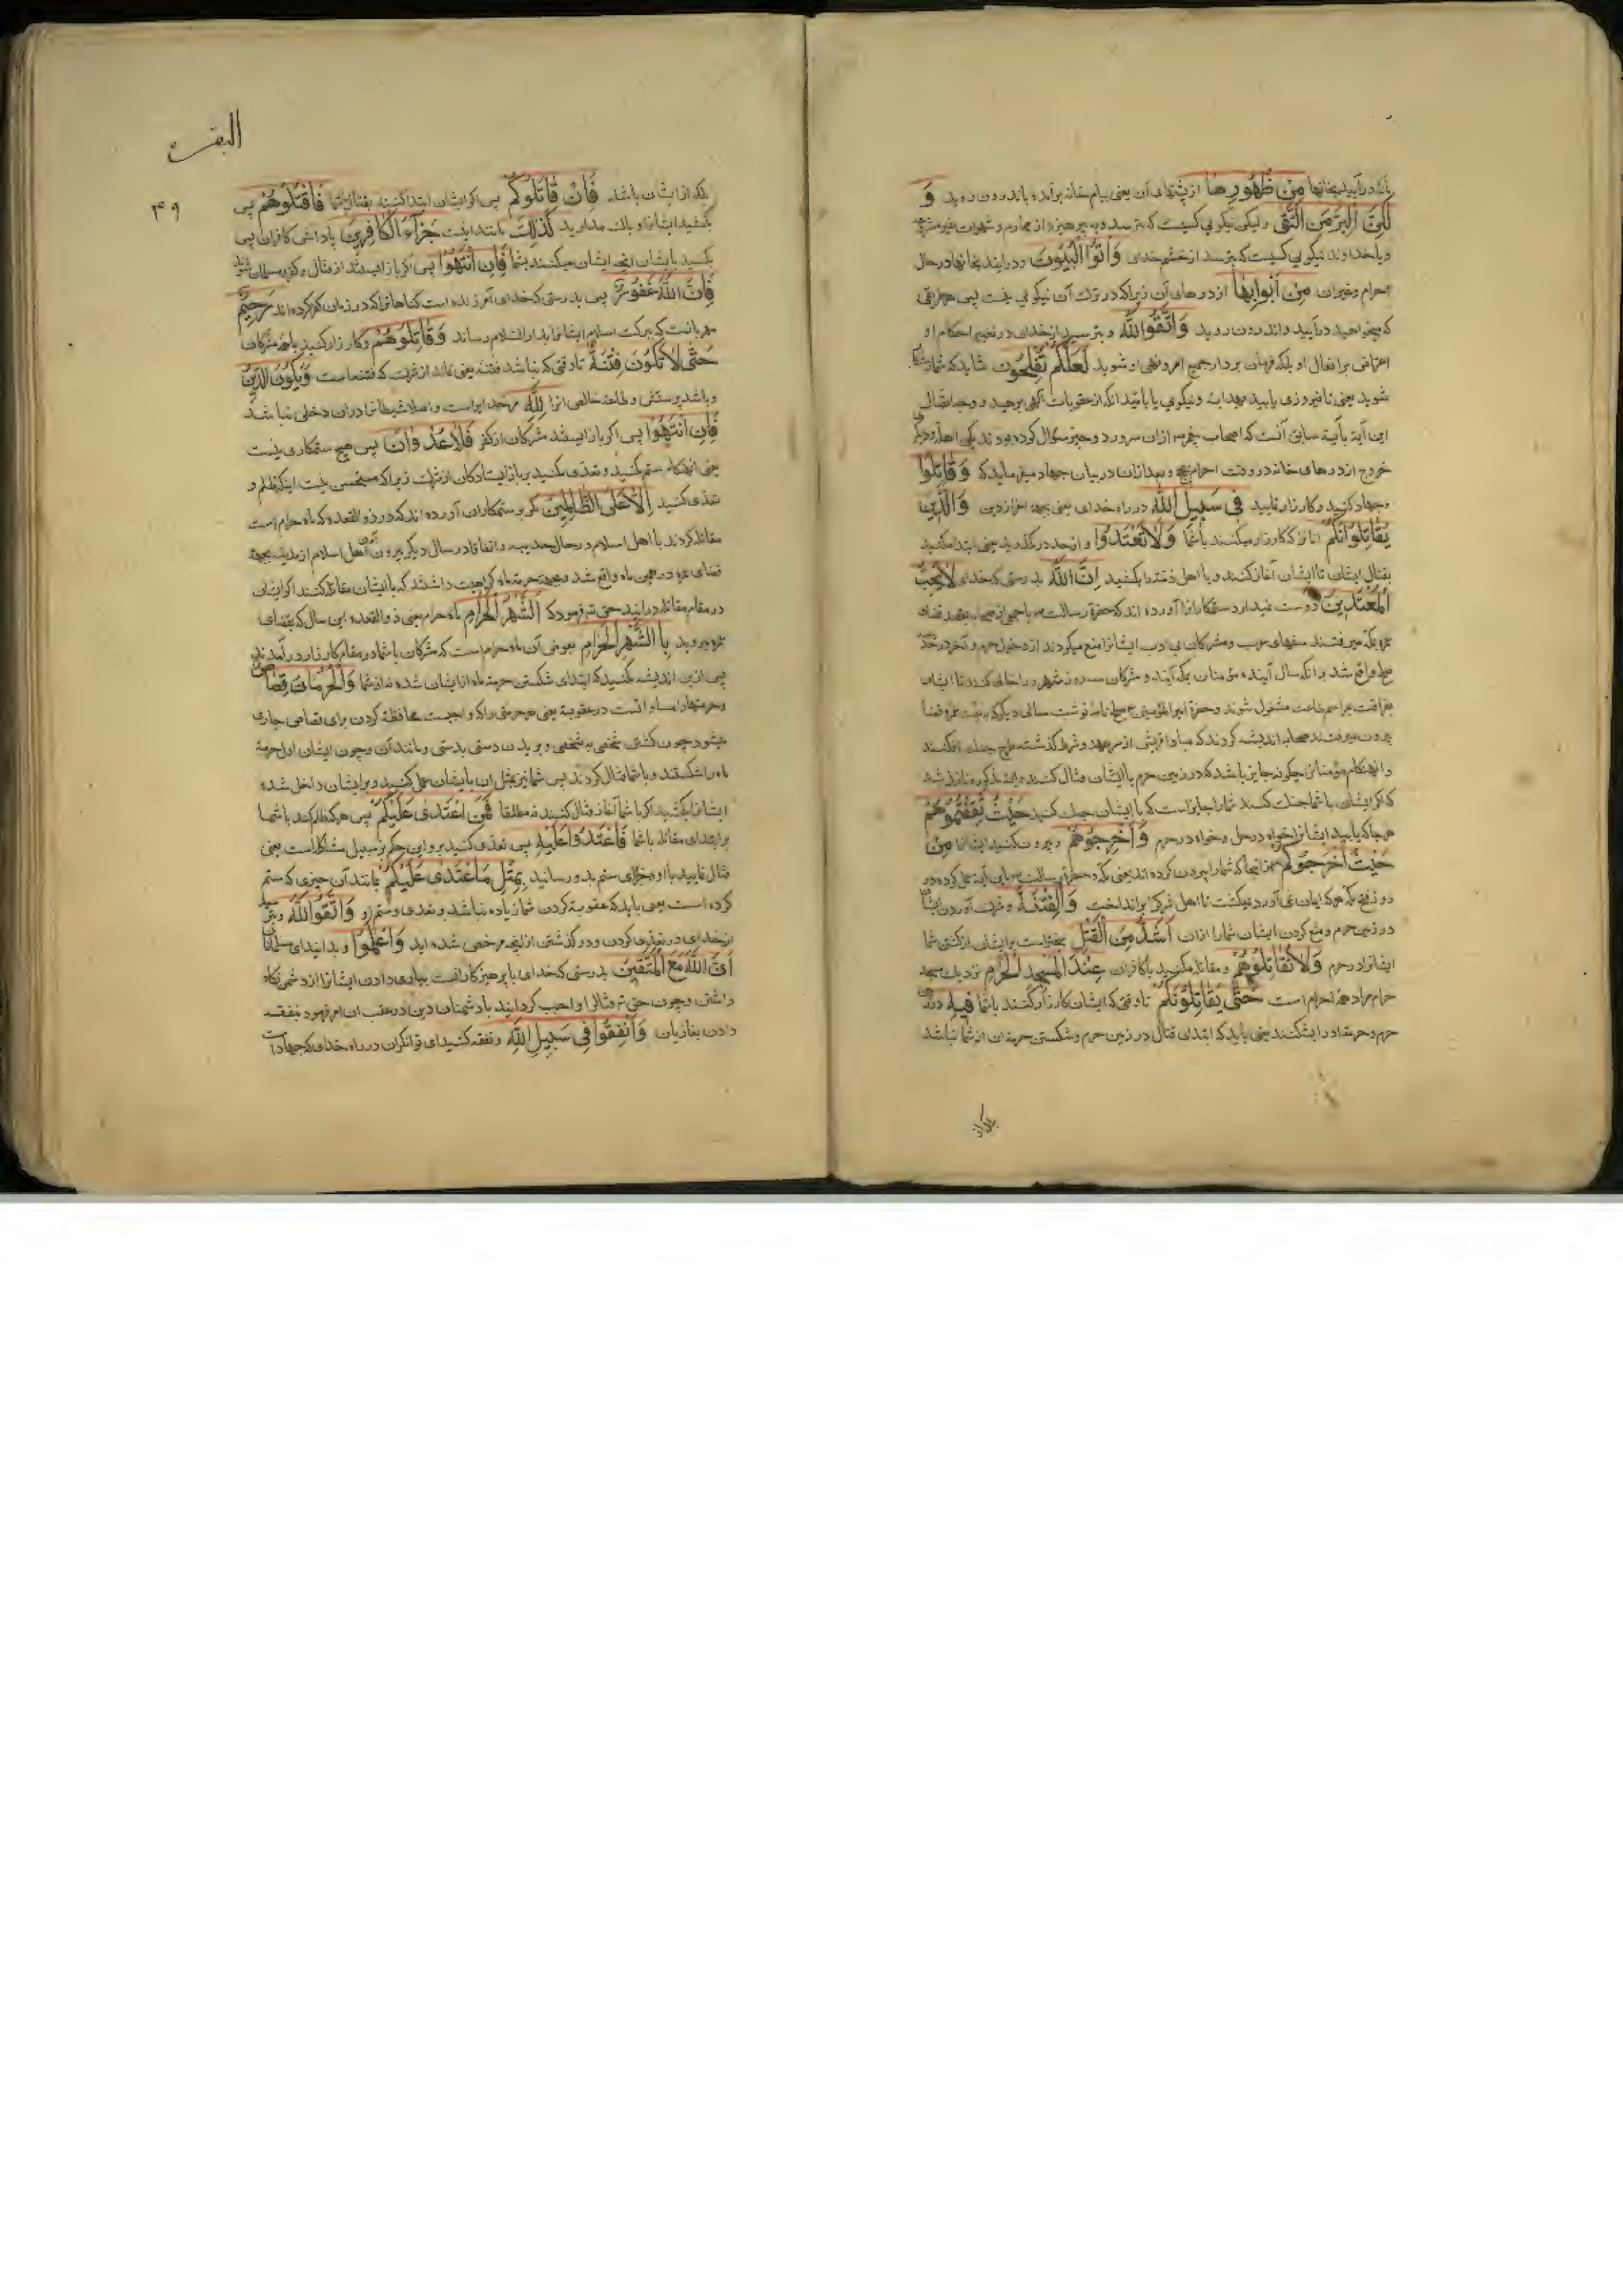 بانکه درآیید بخانها مِنْ ظُهُورِهَا از پشتهای آن یعنی ببام خانه برآمده باندرون روید وَ
لٰکِنَّ الْبِرَّ مَنِ اتَّقٰی ولیکن نیکویی کسیست که بترسد و بپرهیزد از محارم و شهوات
ویا خداوند نیکویی کسیست که بترسد از خشم خدای وَاْتُوا الْبُیُوتَ ودرایید بخانها در حال
احرام وغیر ان مِنْ اَبْوٰابِهٰا از درهای آن زیراکه در ترک آن نیکویی نیست پس هر طریق
که میخواهید درآیید واندرون روید وَاتَّقُوا اللّٰهَ وبترسید از خدای در تغییر احکام او
اعتراض بر افعال او بلکه فرمان بردار جمیع امر ونهی او شوید لَعَلَّکُمْ تُفْلِحُونَ شاید که شما رستگار
شوید یعنی تا فیروزی یابید بهدایت ونیکویی یا بامید انکه از عقوبات الهی برهید و وجه اتصال
این آیة بآیة سابق آنست که اصحاب از ان سرور دو چیز سؤال کرده بودند یکی اهله ودیگر
خروج از درهای خانه در وقت احرام حج وبعد ازان در بیان جهاد میفرماید که وَقٰاتِلُوا
وجهاد کنید وکارزار نمایید فِی سَبِیلِ اللّٰهِ در راه خدای یعنی بجهة اعزاز دین الَّذِینَ
یُقٰاتِلُونَکُمْ انانرا که کارزار میکنند باشما وَلٰا تَعْتَدُوا واز حد درمگذرید یعنی ابتدا مکنید
بقتال ایشان تا ایشان آغاز کنند ویا اهل ذمه را مکشید اِنَّ اللّٰهَ بدرستی که خدای لٰا یُحِبُّ
الْمُعْتَدِینَ دوست نمیدارد ستمکارانرا آورده اند که حضرة رسالت با جمعی از صحابه بقصد قضای
عمره بمکه میرفتند سفهای عرب ومشرکان بی ادب ایشانرا منع میکردند از دخول حرم وآخر در حدیبیه
صلح واقع شد برانکه سال آینده مؤمنان بمکه آیند ومشرکان سه روز شهر را خالی کنند تا ایشان
بفراغت بمراسم طاعت مشغول شوند وحضرة امیر المؤمنین ع صلح نامه نوشت سالی دیگر که بنیت عمره قضا
بیرون میرفتند صحابه اندیشه کردند که مبادا قریش از سر عهد وشرط گذشته طرح جنک افکنند
وانهنکام مؤمنانرا چکونه جایز باشد که در زمین حرم با ایشان قتال کنند ایة مذکوره نازل شد
که اگر ایشان باشما جنک کنند شما را جایز است که با ایشان جنک کنید حَیْثُ ثَقِفْتُمُوهُمْ
هر جا که یابید ایشانرا خواه در حل وخواه در حرم وَاَخْرِجُوهُمْ وبیرون کنید ایشانرا مِنْ
حَیْثُ اَخْرَجُوکُمْ از انجا که شما را بیرون کرده اند یعنی مکه وحضرة رسالت باین آیة عمل کرده در
روز فتح مکه هر که ایمان نمی آورد میکشت تا اهل شرک را برانداخت وَالْفِتْنَةُ وشرک آوردن ایشان
در زمین حرم ومنع کردن ایشان شما را ازان اَشَدُّ مِنَ الْقَتْلِ سختتر است بر ایشان از کشتن شما
ایشانرا در حرم وَلٰا تُقٰاتِلُوهُمْ ومقاتله مکنید با کافران عِنْدَ الْمَسْجِدِ الْحَرٰامِ نزدیک مسجد
حرام مراد همه حرم است حَتّٰی یُقٰاتِلُوکُمْ تا وقتی که ایشان کارزار کنند باشما فِیهِ
حرم وحرمة او را بشکنند یعنی باید که ابتدای قتال در زمین حرم وشکستن حرمة ان از شما نباشد
بلکه از
البقرة
۴۹
بلکه از ایشان باشد فَاِنْ قٰاتَلُوکُمْ پس اگر ایشان ابتدا کنند بقتال شما فَاقْتُلُوهُمْ پس
بکشید ایشانرا و باک مدارید کَذٰلِکَ مانند اینست جَزٰاءُ الْکٰافِرِینَ پاداش کافران پس
بکنید بایشان انچه ایشان میکنند بشما فَاِنِ انْتَهَوْا پس اگر باز ایستند از قتال وکفر ومسلمان شوند
فَاِنَّ اللّٰهَ غَفُورٌ پس بدرستی که خدای آمرزنده است گناهانرا که در زمان کفر کرده اند رَحِیمٌ
مهربانست که ببرکت اسلام ایشانرا بدار السلام رساند وَقٰاتِلُوهُمْ وکارزار کنید با مشرکان
حَتّٰی لٰا تَکُونَ فِتْنَةٌ تا وقتی که نباشد فتنه یعنی نماند از شرک که فتنه است وَیَکُونَ الدِّینُ
وباشد پرستش وطاعة خالص انرا لِلّٰهِ مر خدایراست واصلا شیطانرا دران دخلی نباشد
فَاِنِ انْتَهَوْا پس اگر باز ایستند مشرکان از کفر فَلٰا عُدْوٰانَ پس هیچ ستمکاری نیست
یعنی انهنکام ستم مکنید وتعدی مکنید بر باز ایستادکان از شرک زیرا که مستحسن نیست اینکه ظلم و
تعدی کنید اِلّٰا عَلَی الظّٰالِمِینَ مکر بر ستمکاران آورده اند که در ذو القعده که ماه حرام است
مقاتله کردند با اهل اسلام در سال حدیبیه واتفاقا در سال دیگر بیرون آمدن اهل اسلام از مدینه بجهة
قضای عمره در همین ماه واقع شد وبجهة حرمة ماه کراهیت داشتند که با ایشان مقاتله کنند اگر ایشان
در مقام مقاتله درایند حق تع فرمود که اَلشَّهْرُ الْحَرٰامُ ماه حرام یعنی ذو القعده این سال که بقضای
عمره میروید بِالشَّهْرِ الْحَرٰامِ بعوض آن ماه حرام است که مشرکان باشما در مقام کارزار در آمدند
پس ازین اندیشه مکنید که ابتدای شکستن حرمة ماه از ایشان شده نه از شما وَالْحُرُمٰاتُ قِصٰاصٌ
وحرمتها را مساواتست در عقوبة یعنی هر حرمتی را که واجبست محافظة کردن برای قصاص جاری
میشود چون کشتن شخصی بشخصی وبریدن دستی بدستی ومانند آن وچون ایشان اول حرمة
ماه را شکستند وباشما قتال کردند پس شما نیز بمثل ان بایشان عمل کنید وبر ایشان داخل شده
ایشانرا بکشید اگر باشما آغاز قتال کنند نه مطلقا فَمَنِ اعْتَدٰی عَلَیْکُمْ پس هر که ظلم کند باشما
بر ابتدای مقاتله باشما فَاعْتَدُوا عَلَیْهِ پس تعدی کنید برو واین حکم بر سبیل مشاکله است یعنی
قتال نمایید با او وجزای ستم بدو رسانید بِمِثْلِ مَا اعْتَدٰی عَلَیْکُمْ مانند آن چیزی که ستم
کرده است یعنی باید که عقوبة کردن شما زیاده نباشد بر تعدی وستم او وَاتَّقُوا اللّٰهَ وبترسید
از خدای در تعدی کردن ودر گذشتن از انچه مرخص شده اید وَاعْلَمُوا وبدانید ای مسلمانان
اَنَّ اللّٰهَ مَعَ الْمُتَّقِینَ بدرستی که خدای با پرهیزکارانست بیاری دادن ایشانرا از دشمن نکاه
داشتن وچون حق تع قتال را واجب کردانید با دشمنان دین در عقب ان امر فرمود بنفقه
دادن بغازیان وَاَنْفِقُوا فِی سَبِیلِ اللّٰهِ ونفقه کنید ای توانکران در راه خدای که جهاد است